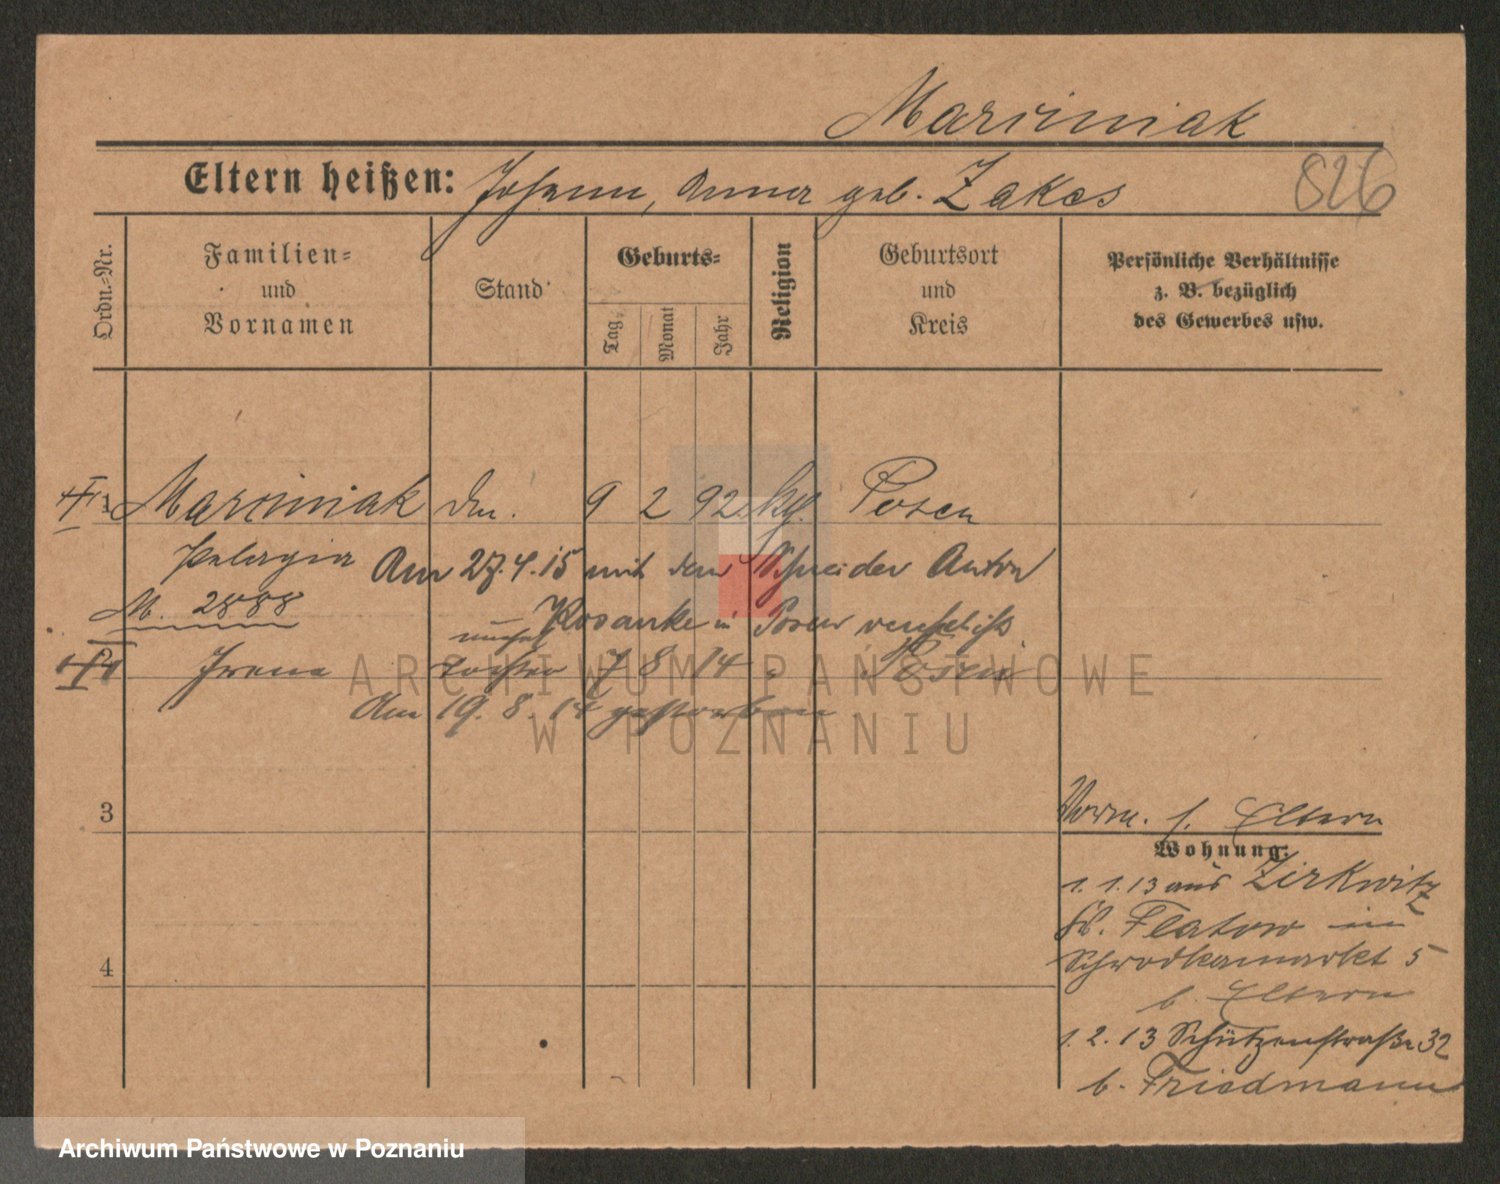 Marciniak
Eltern heißen: Johann, Anna geb. Zakes
826
Ordn.-Nr.
Familien-
und
Vornamen
Stand
Geburts-
Tag
Monat
Jahr
Religion
Geburtsort
und
Kreis
Persönliche Verhältnisse
z. B. bezüglich
des Gewerbes usw.
Marciniak 9 2 92 Posen
Pelagia Am 27.4.15 mit dem Schneider Anton
M. 2888 Kosanke in Posen verehelicht
unehel
Irena Tochter 7 8 14 Posen
Am 19. 8. 14 gestorben
3
4
Vorm. s. Eltern
Wohnung:
1. 1. 13 aus Zirkwitz
Flatow in
Schrodkamarkt 5
b. Eltern
1. 2. 13 Schützenstraße 32
b. Friedmann
ARCHIWUM PAŃSTWOWE
W POZNANIU
Archiwum Państwowe w Poznaniu